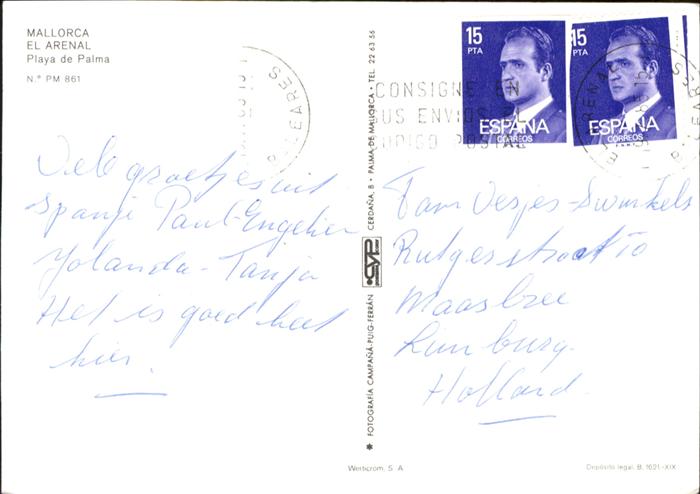 MALLORCA
EL ARENAL
Playa de Palma
N.º PM 861
Vele groetjes uit
Spanje Paul-Engelien
Yolanda-Tanja
Het is goed heet
hier.
★ FOTOGRAFÍA CAMPAÑÁ-PUIG-FERRÁN
CYP
CERDAÑA, 8 - PALMA DE MALLORCA - TEL. 22 63 56
15
PTA
ESPAÑA
CORREOS
15
PTA
ESPAÑA
CORREOS
CONSIGNE EN
SUS ENVIOS EL
CODIGO POSTAL
BALEARES
Fam Vesjes-Swinkels
Rutgersstraat 10
Maasbree
Limburg.
Holland.
Werticrom, S. A.
Depósito legal. B. 1621-XIX